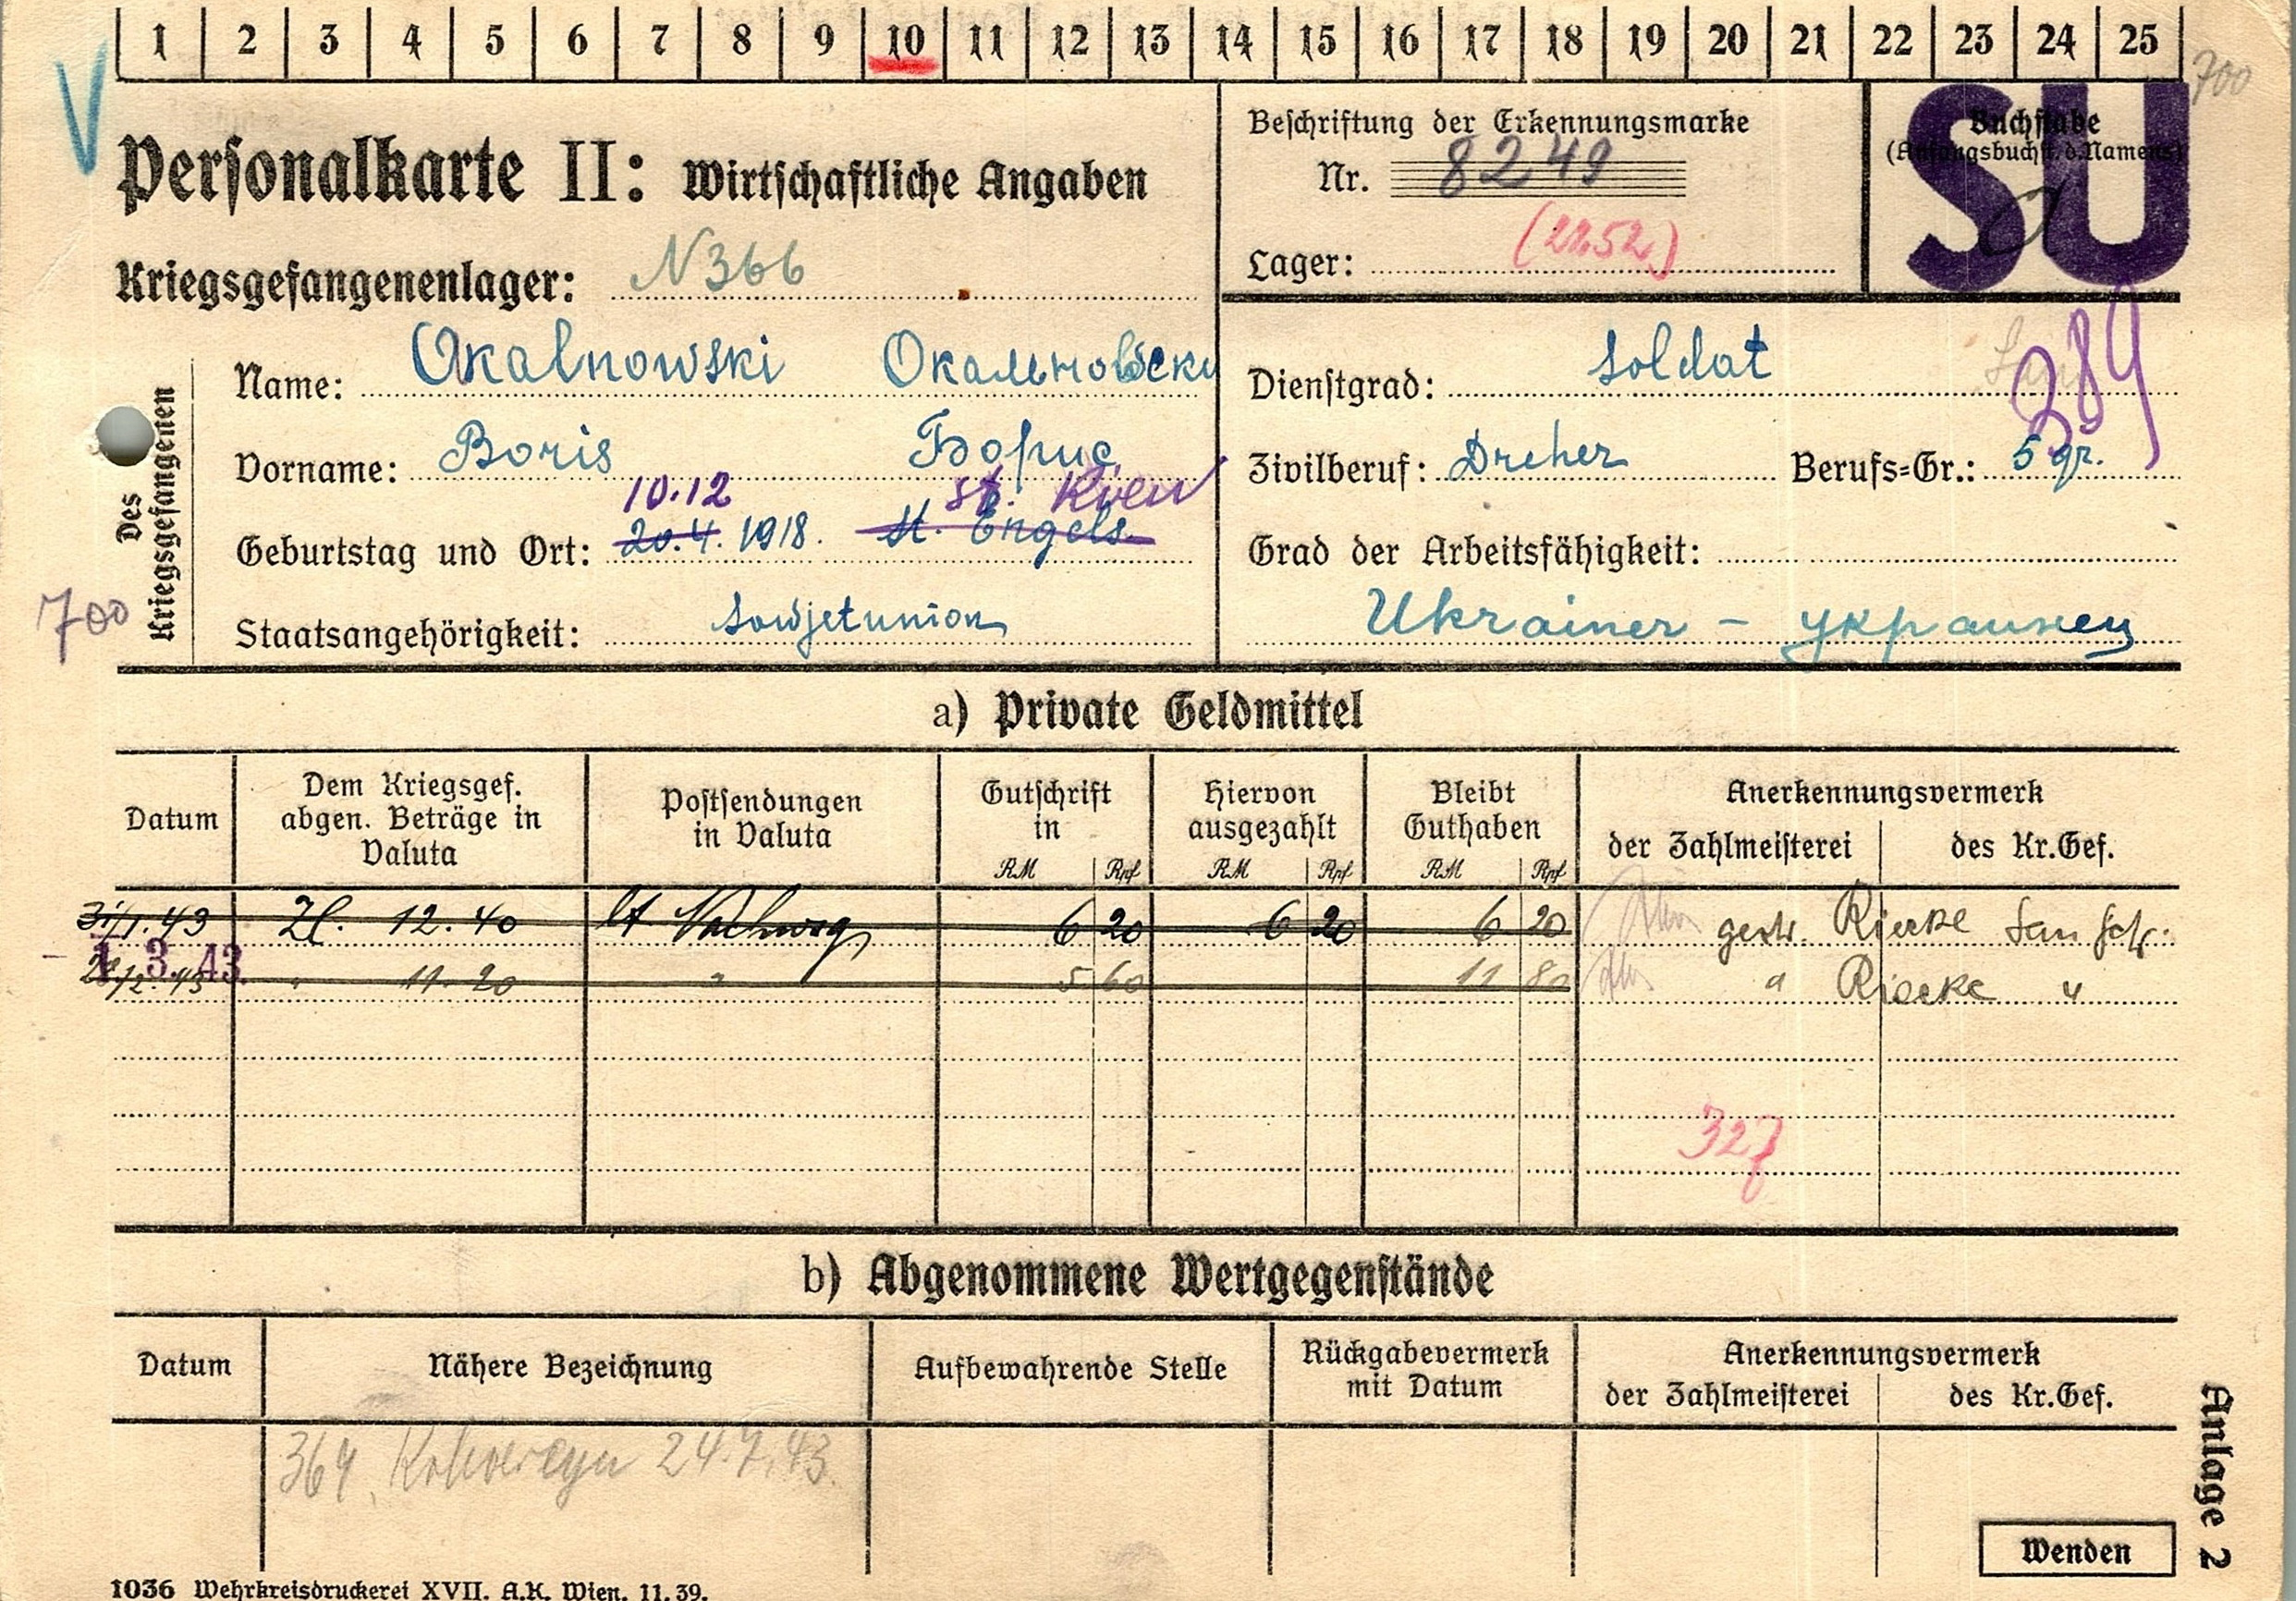 1 2 3 4 5 6 7 8 9 10 11 12 13 14 15 16 17 18 19 20 21 22 23 24 25
700
Personalkarte II: Wirtschaftliche Angaben
Beschriftung der Erkennungsmarke
Nr. 8249
Lager: (2252)
Buchstabe
(Anfangsbuchst. d. Namens)
SU
Kriegsgefangenenlager: N366
Des Kriegsgefangenen
Name: Okalnowski Окальновски
Vorname: Boris Борис
10.12 st. Kiew
Geburtstag und Ort: 20.4. 1918. st. Engels.
Staatsangehörigkeit: Sowjetunion
700
Dienstgrad: Soldat
389
Zivilberuf: Dreher Berufs=Gr.: 5 gr.
Grad der Arbeitsfähigkeit:
Ukrainer - украинец
a) Private Geldmittel
Datum
Dem Kriegsgef. abgen. Beträge in Valuta
Postsendungen in Valuta
Gutschrift in RM Rpf
Hiervon ausgezahlt RM Rpf
Bleibt Guthaben RM Rpf
Anerkennungsvermerk
der Zahlmeisterei des Kr.Gef.
31/1.43 Zl. 12.40 lt 6 20 6 20 6 20 gest. Riecke
1.3.43
11.20 " 5 60 11 80 " Riecke "
327
b) Abgenommene Wertgegenstände
Datum
Nähere Bezeichnung
Aufbewahrende Stelle
Rückgabevermerk mit Datum
Anerkennungsvermerk
der Zahlmeisterei des Kr.Gef.
364 24.7.43.
Anlage 2
Wenden
1036 Wehrkreisdruckerei XVII. A.K. Wien. 11.39.